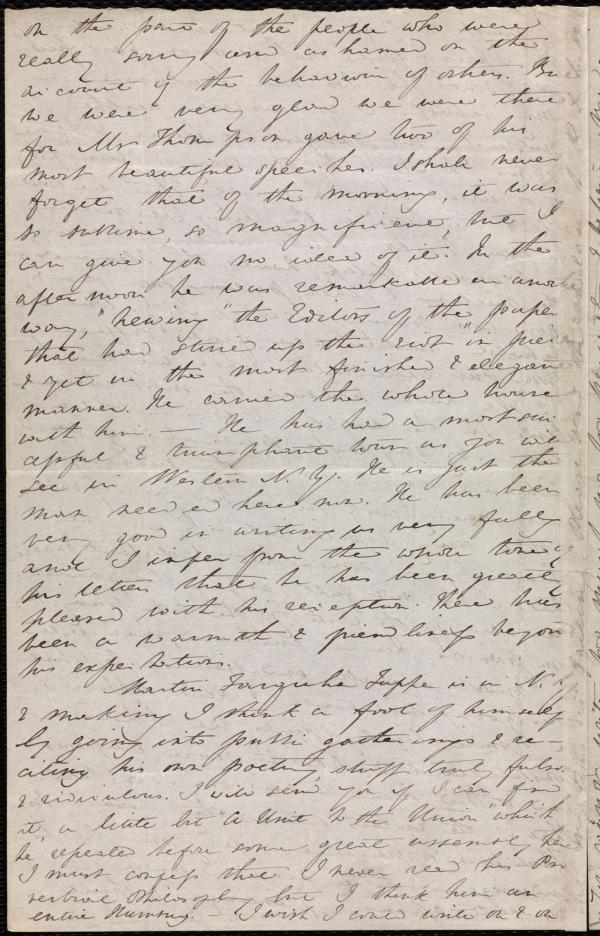 on the part of the people who were
really sorry and ashamed on the
account of the behaviour of others. But
we were very glad we were there
for Mr Thompson gave two of his
most beautiful speeches. I shall never
forget that of the morning, it was
so sublime, so magnificent, but I
can give you no idea of it. In the
afternoon he was remarkable in another
way, "hewing" the Editors of the paper
that had stirred up the riot "in pieces"
& yet in the most finished & elegant
manner. He carried the whole house
with him. — He has had a most suc
cessful & triumphant tour as you will
see in Western N. Y. He is just the
man needed here now. He has been
very good in writing us very fully
and I infer from the whole tone of
his letters that he has been greatly
pleased with his reception. There has
been a warmth & friendliness beyond
his expectations.
Martin Farquhar Tupper is in N. Y.
& making I think a fool of himself
by going into public gatherings & re-
citing his own poetry, stuff truly fulsome
& ridiculous. I will send you if I can find
it, a little bit "A Unit to the Union" which
he repeated before some great assembly here
I must confess that I never read his Pro
verbial Philosophy but I think him an
entire Humbug. — I wish I could write on & on